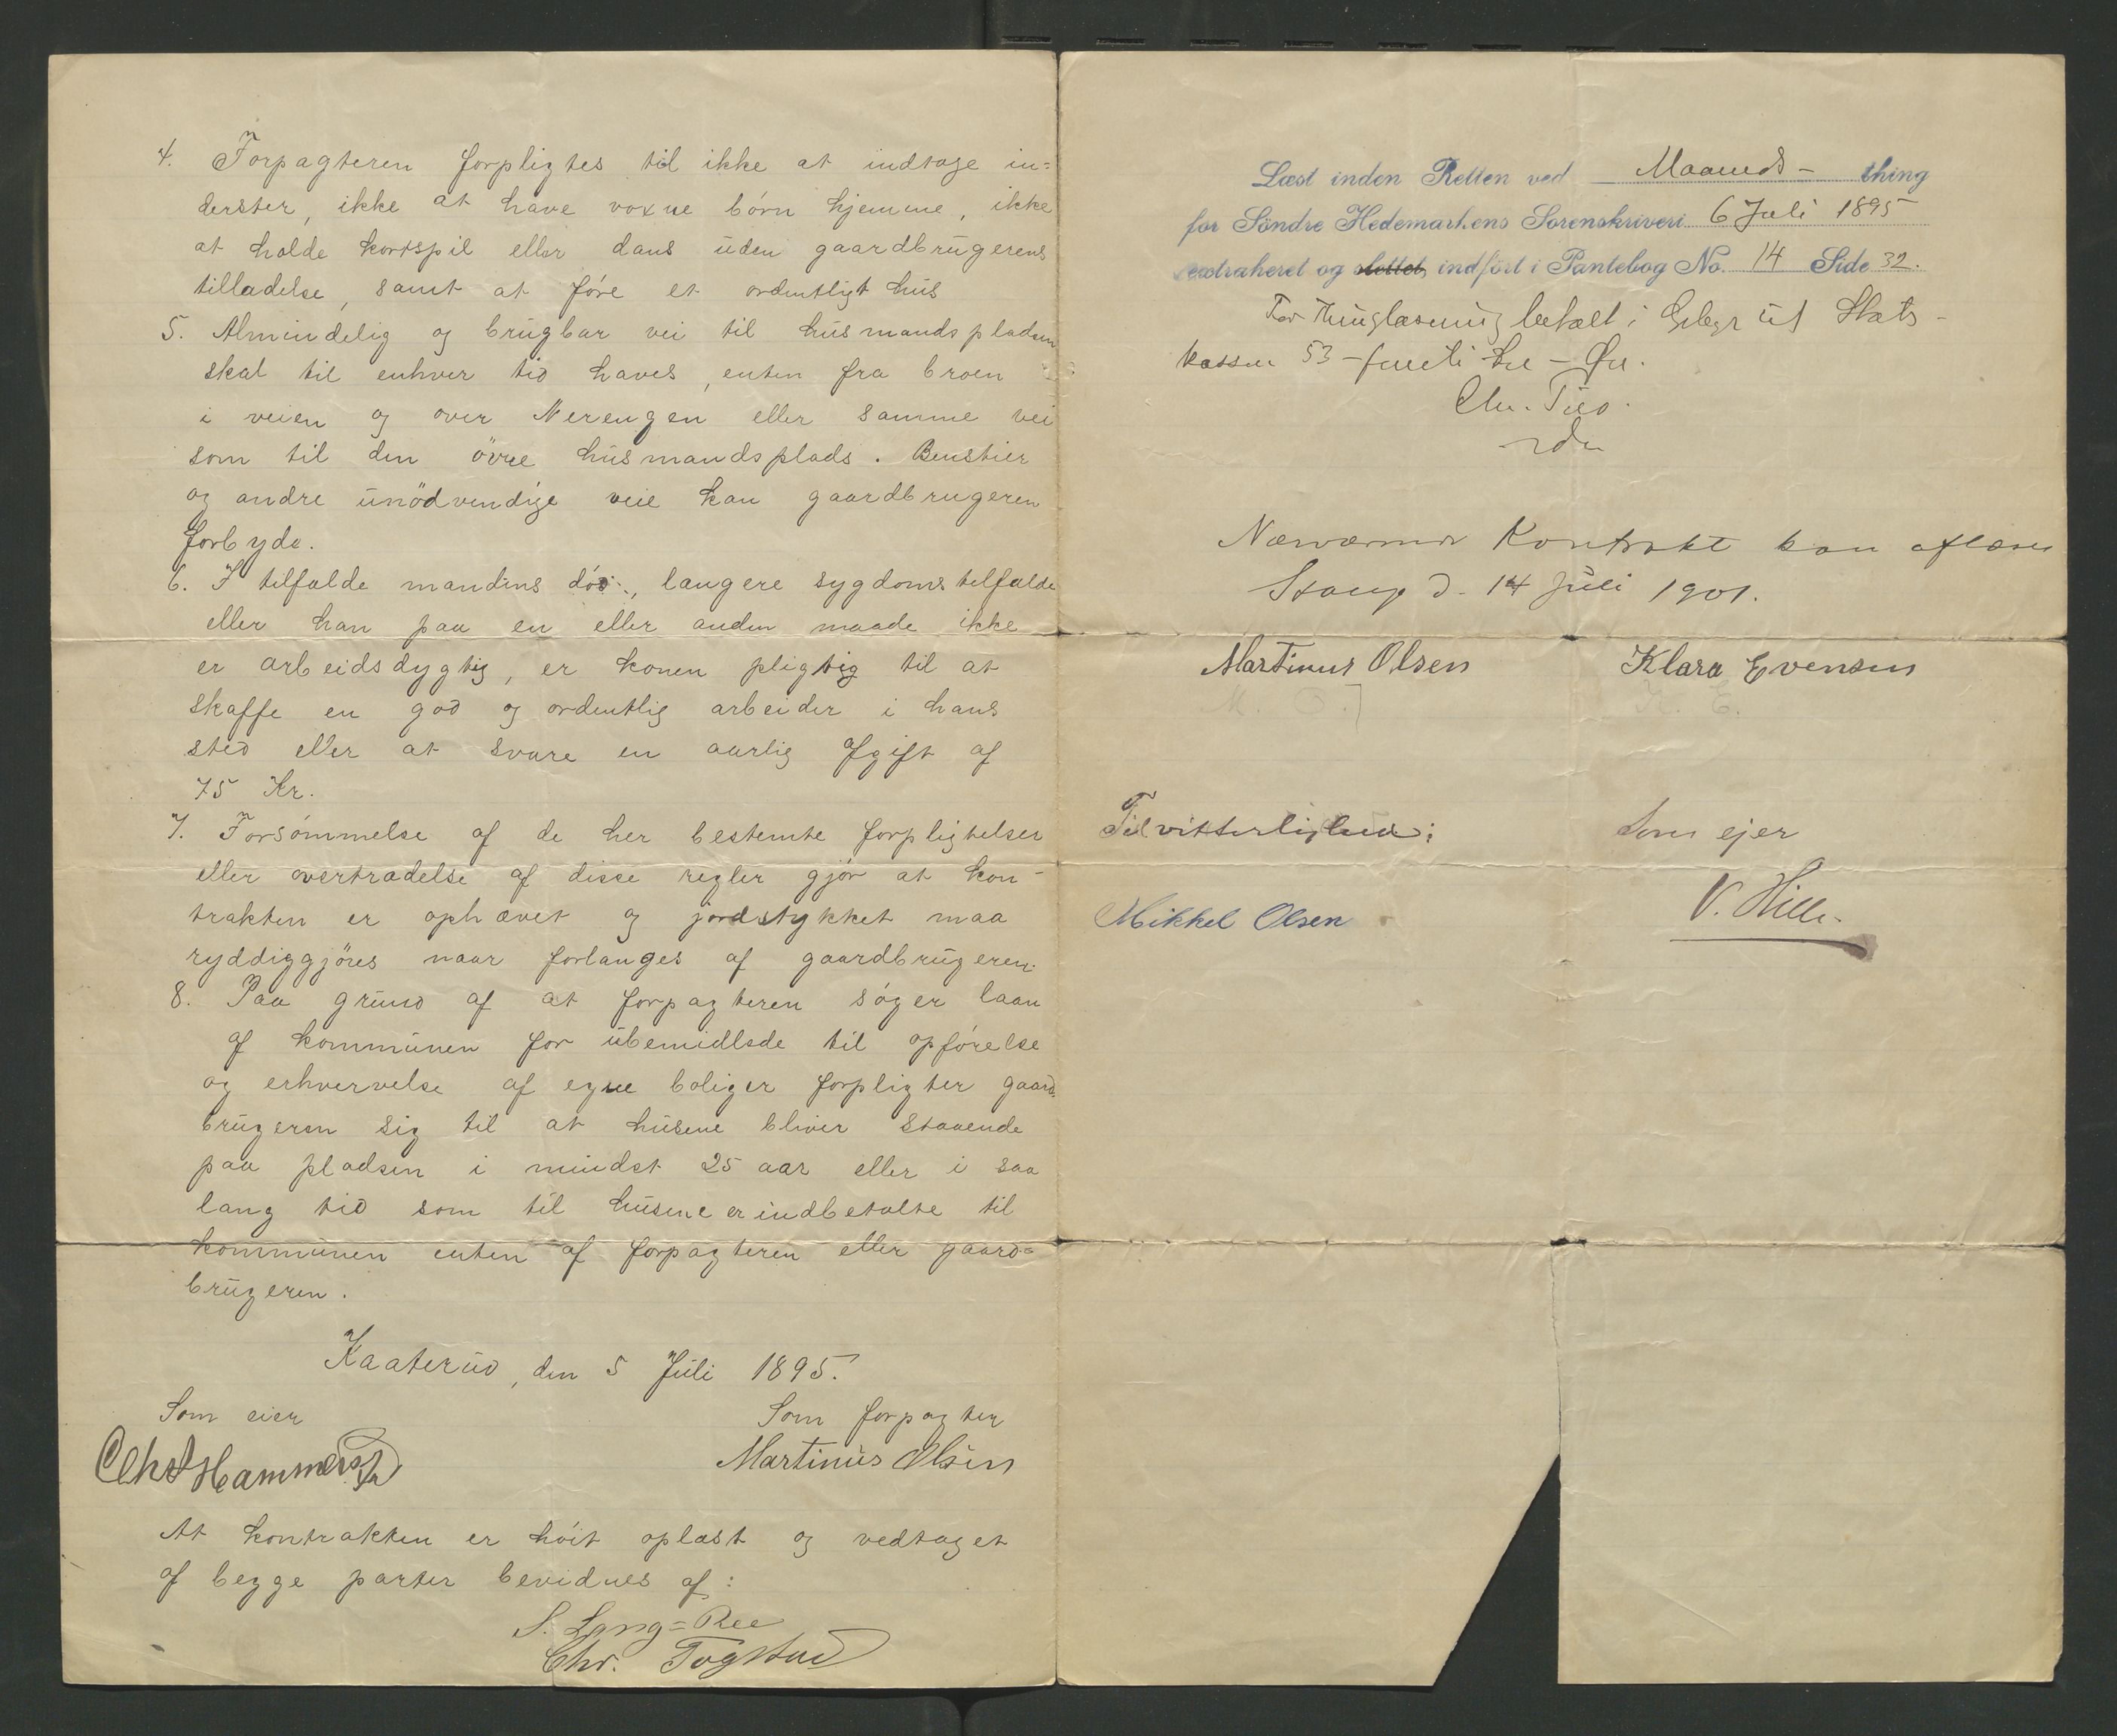 4. Forpagteren forpligtes til ikke at indtage in=
derster, ikke at have voxne börn hjemme, ikke
at holde kortspil eller dans uden gaardbrugerens
tilladelse, samt at före et ordentligt hus
5. Almindelig og brugbar vei til husmandspladsen
skal til enhver tid haves, enten fra broen
i veien og over Nerengen eller samme vei
som til den övre husmandsplads. Benstier
og andre unödvendige veie kan gaardbrugeren
forbyde.
6. I tilfælde mandens död, længere sygdomstilfælde
eller han paa en eller anden maade ikke
er arbeidsdygtig, er konen pligtig til at
skaffe en god og ordentlig arbeider i hans
sted eller at svare en aarlig afgift af
75 Kr.
7. Forsömmelse af de her bestemte forpligtelser
eller overtrædelse af disse regler gjör at kon-
trakten er ophævet og jordstykket maa
ryddiggjöres naar forlanges af gaardbrugeren.
8. Paa grund af at forpagteren söger laan
af kommunen for ubemidlede til opförelse
og erhvervelse af egne boliger forpligter gaard
brugeren sig til at husene bliver staaende
paa pladsen i mindst 25 aar eller i saa
lang tid som til husene er indbetalte til
kommunen enten af forpagteren eller gaard=
brugeren.
Kaaterud, den 5 Juli 1895.
Som eier Som forpagter
Chr Hammerstad Martinus Olsen
At kontrakten er höit oplæst og vedtaget
af begge parter bevidnes af:
S. Lang=Ree
Chr. Togstad
Læst inden Retten ved Maaneds- thing
for Söndre Hedemarkens Sorenskriveri 6 Juli 1895
extraheret og slettet indfört i Pantebog No. 14 Side 32.
For Thinglæsning betalt i Gebyr til Stats-
kassen 53 - femti tre - Öre.
Nærværende Kontrakt kan aflæses
Stange d. 14 Juli 1901.
Martinus Olsen Klara Evensen
M. O. K. E.
Til vitterlighed: Som ejer
Mikkel Olsen V. Hille.